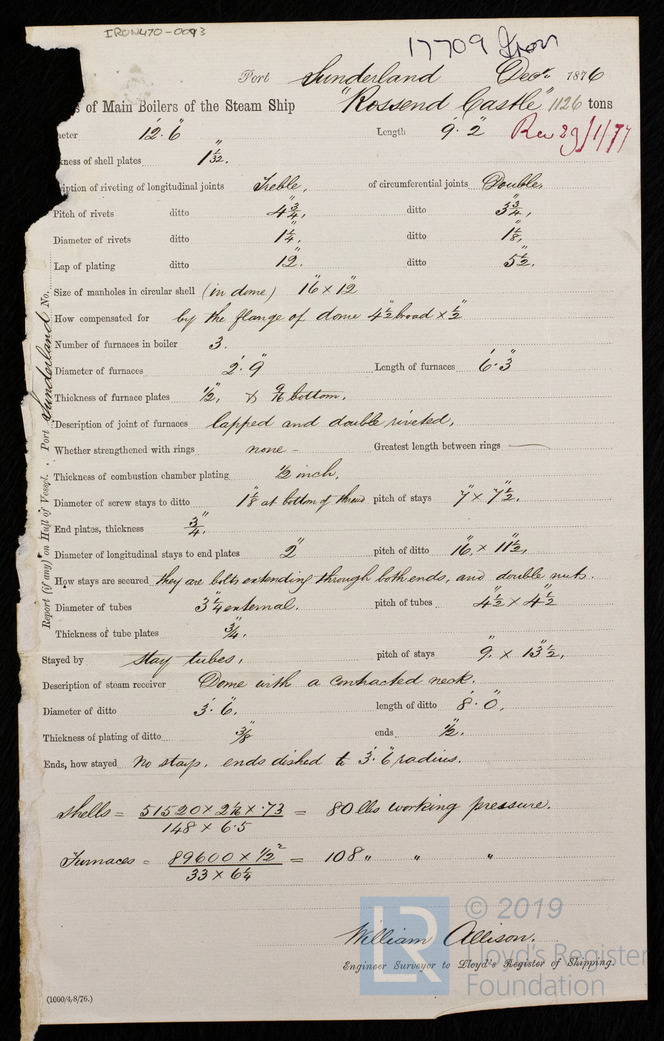 IRON470-0093
17709 Iron
Port Sunderland Decr. 1876
s of Main Boilers of the Steam Ship "Rossend Castle" 1126 tons
meter 12'.6" Length 9'.2" Rec 29/1/77
kness of shell plates 1 1/32".
ription of riveting of longitudinal joints Treble, of circumferential joints Double,
Pitch of rivets ditto 4 3/4", ditto 3 3/4",
Diameter of rivets ditto 1 1/4", ditto 1 1/8",
Lap of plating ditto 12". ditto 5 1/2".
Size of manholes in circular shell (in dome) 16" x 12"
How compensated for by the flange of dome 4 1/2" broad x 1/2"
Number of furnaces in boiler 3.
Diameter of furnaces 2'.9" Length of furnaces 6'.3"
Thickness of furnace plates 1/2", & 9/16" bottom.
Description of joint of furnaces lapped and double riveted,
Whether strengthened with rings none - Greatest length between rings —
Thickness of combustion chamber plating 1/2 inch,
Diameter of screw stays to ditto 1 1/8" at bottom of thread pitch of stays 7" x 7 1/2".
End plates, thickness 3/4".
Diameter of longitudinal stays to end plates 2" pitch of ditto 16", x 11 1/2",
How stays are secured they are bolts extending through both ends, and double nuts.
Diameter of tubes 3 1/4" external. pitch of tubes 4 1/2" x 4 1/2"
Thickness of tube plates 3/4".
Stayed by stay tubes, pitch of stays 9". x 13 1/2",
Description of steam receiver Dome with a contracted neck.
Diameter of ditto 3'.6". length of ditto 8'.0",
Thickness of plating of ditto 3/8" ends 1/2".
Ends, how stayed No stays, ends dished to 3'.6" radius.
Shells = 51520 x 2 1/16 x .73 = 80 lbs working pressure.
148 x 6.5
Furnaces = 89600 x 1/2² = 108 " " "
33 x 6 1/4
William Allison.
Engineer Surveyor to Lloyd's Register of Shipping.
(1000/4/8/76.)
Report (if any) on Hull of Vessel. Port Sunderland No.
© 2019
LR Lloyd's Register
Foundation